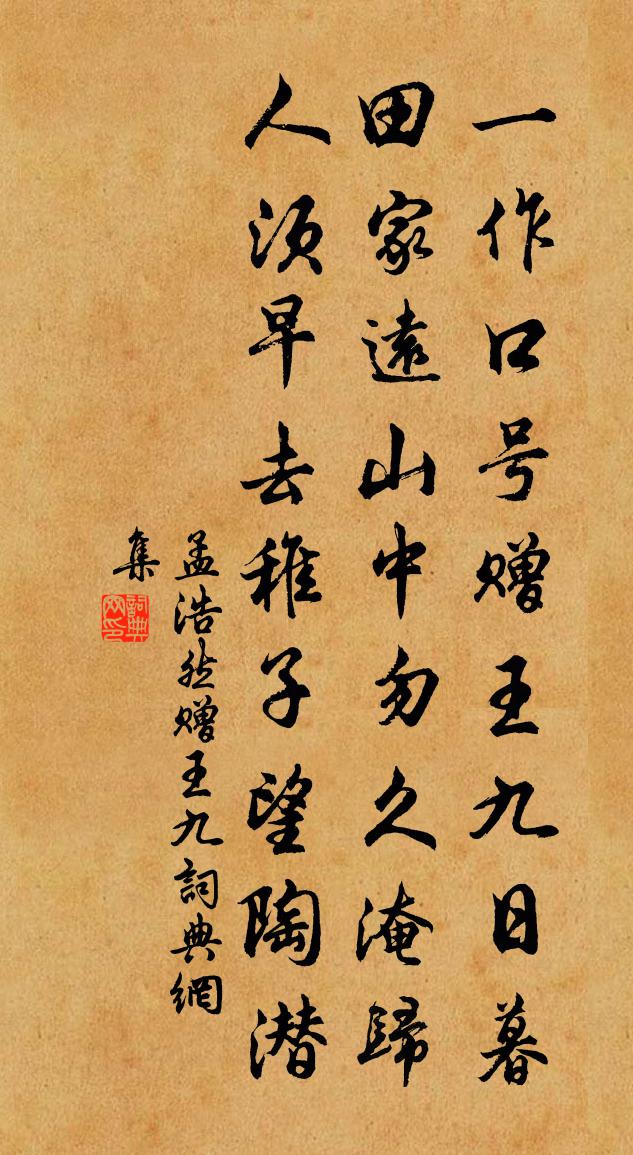 一作口号赠王九日暮
田家遠山中勿久淹歸
人须早去稚子望陶潜
孟浩然赠王九詞典網
集
詞典網印